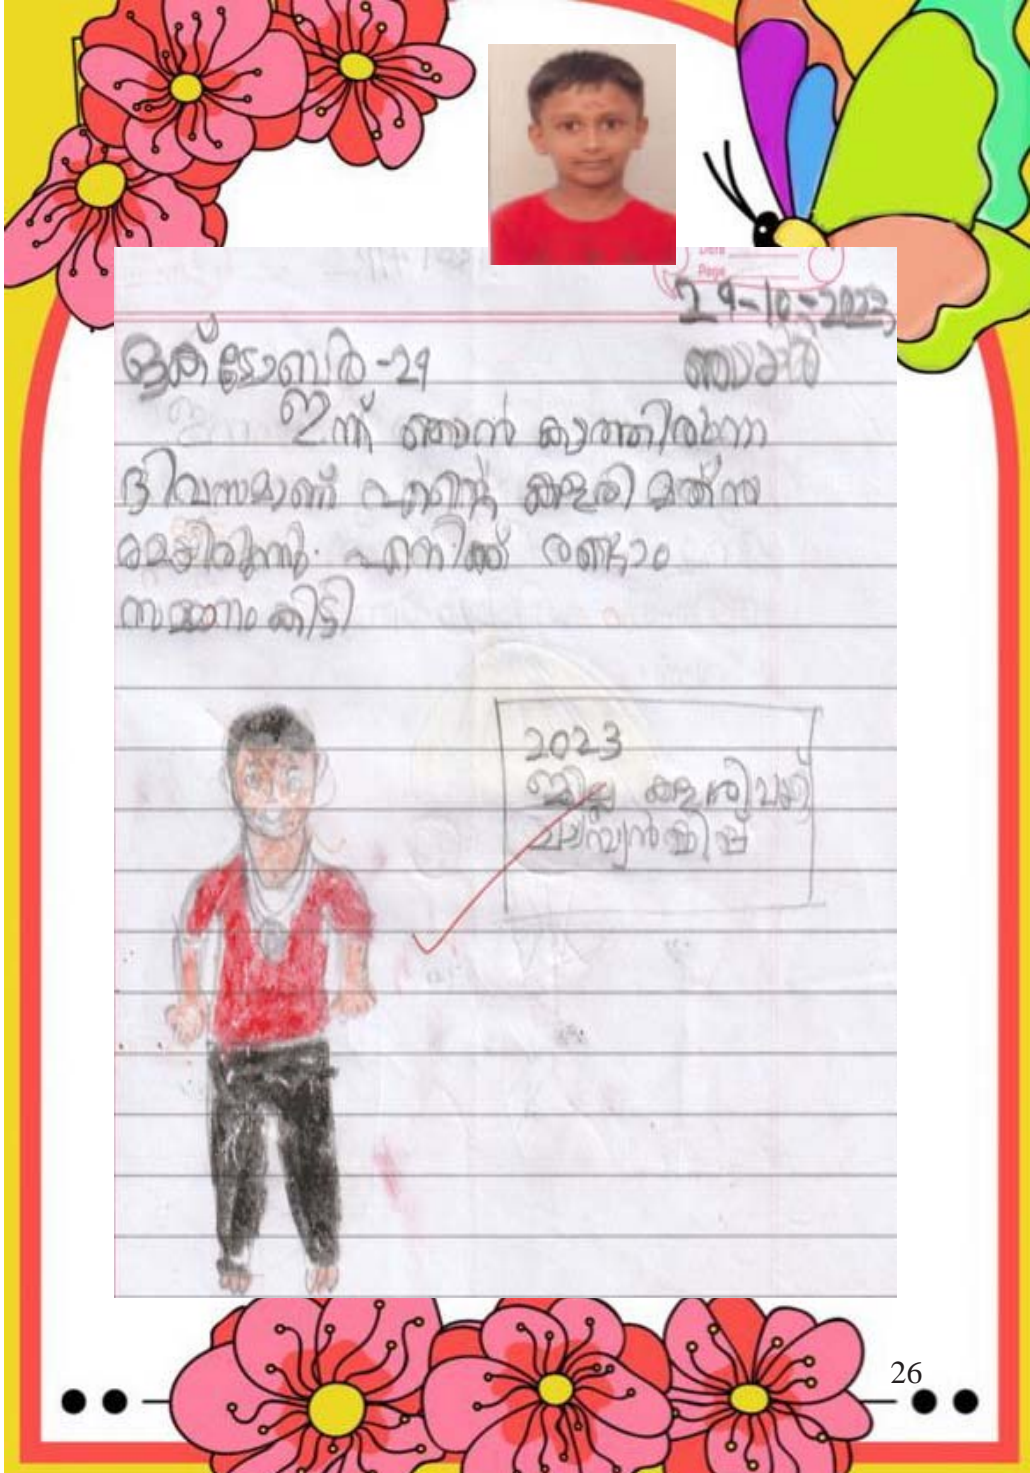 Date
Page
29-10-2023
ഒക്ടോബർ-29 ഞായർ
ഇന്ന് ഞാൻ കാത്തിരുന്ന
ദിവസമാണ് എന്റെ കളരി മത്സ
രമായിരുന്നു. എനിക്ക് രണ്ടാം
സമ്മാനം കിട്ടി
2023
ജില്ല കളരിപയറ്റ്
ചാമ്പ്യൻഷിപ്പ്
26